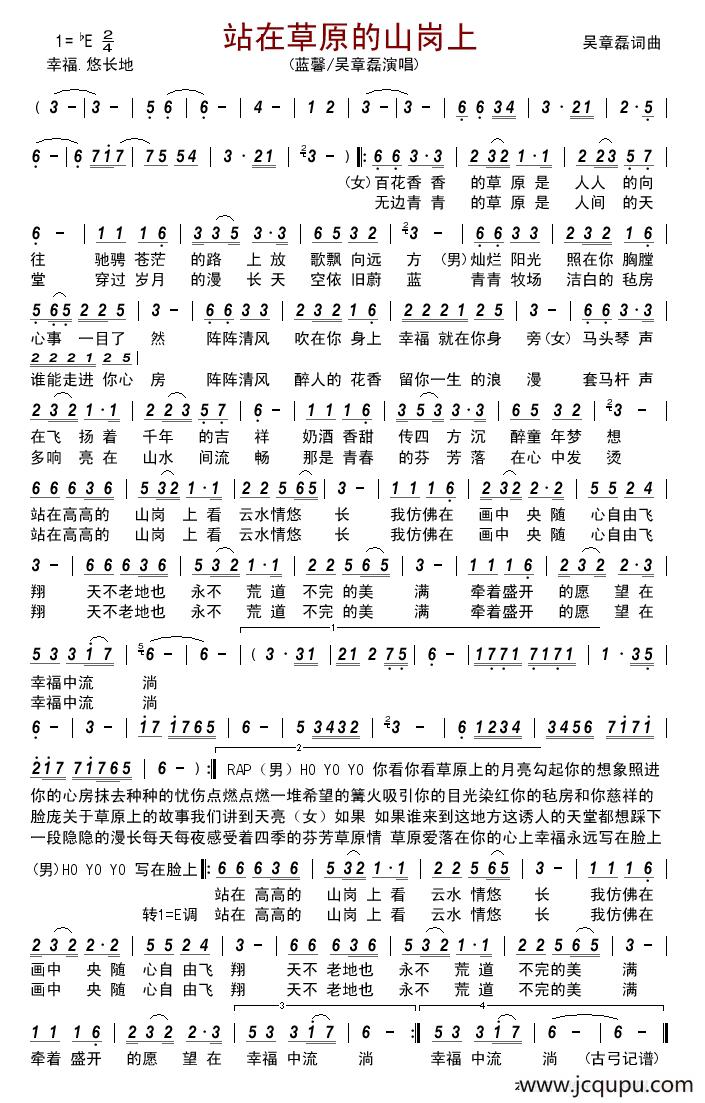 站在草原的山岗上
1= ♭E 2/4
幸福.悠长地
(蓝馨/吴章磊演唱)
吴章磊词曲
( 3 - | 3 - | 5 6 | 6 - | 4 - | 1 2 | 3 - | 3 - | 6 6 34 | 3 · 21 | 2 · 5 |
6 - | 6 71̇7 | 75 54 | 3 · 21 | 3 - ) ‖: 6 6 3·3 | 2 32 1·1 | 2 23 5 7 |
(女)百花香 香 的草 原 是 人人 的向
无边青 青 的草 原 是 人间 的天
6 - | 1 1 1 6 | 3 33 5 3·3 | 6 5 3 5 | 3 - | 6 6 3 3 | 2 32 1 6 |
往 驰骋 苍茫 的路 上 放 歌飘 向远 方 (男)灿烂 阳光 照在你 胸膛
堂 穿过 岁月 的漫 长 天 空依 旧蔚 蓝 青青 牧场 洁白的 毡房
5 65 2 2 5 | 3 - | 6 6 3 3 | 2 2 1 2 | 2 2 2 1 2 5 | 3 - | 6 6 3·3 |
心事 一目了 然 阵阵清风 吹在你 身上 幸福 就在你身 旁(女) 马头琴 声
2 2 2 1 2 5 |
谁能走进 你心 房 阵阵清风 醉人的 花香 留你一生 的浪 漫 套马杆 声
2 32 1·1 | 2 23 5·5 | 6 - | 1 1 1 6 | 3 53 3·3 | 6 5 5 3 2 | 3 - |
在飞 扬 着 千年 的吉 祥 奶酒 香甜 传四 方 沉 醉童 年梦 想
多响 亮 在 山水 间流 畅 那是 青春 的芬 芳 落 在心 中发 烫
6 6 6 3 6 | 5 32 1·1 | 2 2 5 65 | 3 - | 1 1 1 6 | 2 32 2·2 | 5 5 2 4 |
站在高高的 山岗 上 看 云水情悠 长 我仿佛在 画中 央 随 心自由飞
站在高高的 山岗 上 看 云水情悠 长 我仿佛在 画中 央 随 心自由飞
3 - | 6 6 6 3 6 | 5 32 1·1 | 2 2 5 6 5 | 3 - | 1 1 1 6 | 2 32 2·2 |
翔 天不老地也 永不 荒 道 不完 的美 满 牵着盛开 的愿 望 在
翔 天不老地也 永不 荒 道 不完 的美 满 牵着盛开 的愿 望 在
1
5 3 3 1̇7 | 6 - | 6 - | ( 3 · 31 | 21 2 75 | 6 - | 1771 7171 | 1 · 35 |
幸福中流 淌
幸福中流 淌
6 - | 3 - | 1̇7 1̇765 | 6 - | 5 3432 | 3 - | 6 1234 | 3456 71̇71̇ |
2
2̇1̇7 71̇765 | 6 - ) :‖ RAP(男)HO YO YO 你看你看草原上的月亮勾起你的想象照进
你的心房抹去种种的忧伤点燃点燃一堆希望的篝火吸引你的目光染红你的毡房和你慈祥的
脸庞关于草原上的故事我们讲到天亮(女)如果 如果谁来到这地方这诱人的天堂都想踩下
一段隐隐的漫长每天每夜感受着四季的芬芳草原情 草原爱落在你的心上幸福永远写在脸上
(男)HO YO YO 写在脸上 ‖: 6 6 6 3 6 | 5 32 1·1 | 2 2 5 65 | 3 - | 1 1 1 6 |
站在 高高的 山岗 上 看 云水 情悠 长 我仿佛在
转1=E调 站在 高高的 山岗 上 看 云水 情悠 长 我仿佛在
2 32 2·2 | 5 5 2 4 | 3 - | 6 6 6 3 6 | 5 32 1·1 | 2 2 5 6 5 | 3 - |
画中 央 随 心自 由飞 翔 天不 老地也 永不 荒 道 不完的美 满
画中 央 随 心自 由飞 翔 天不 老地也 永不 荒 道 不完的美 满
3 4
1 1 1 6 | 2 32 2·3 | 5 3 3 1̇7 | 6 - | 6 - :‖ 5 3 3 1̇7 | 6 - | 6 - ‖
牵着 盛开 的愿 望 在 幸福 中流 淌 幸福 中流 淌 (古弓记谱)
www.jcqupu.com